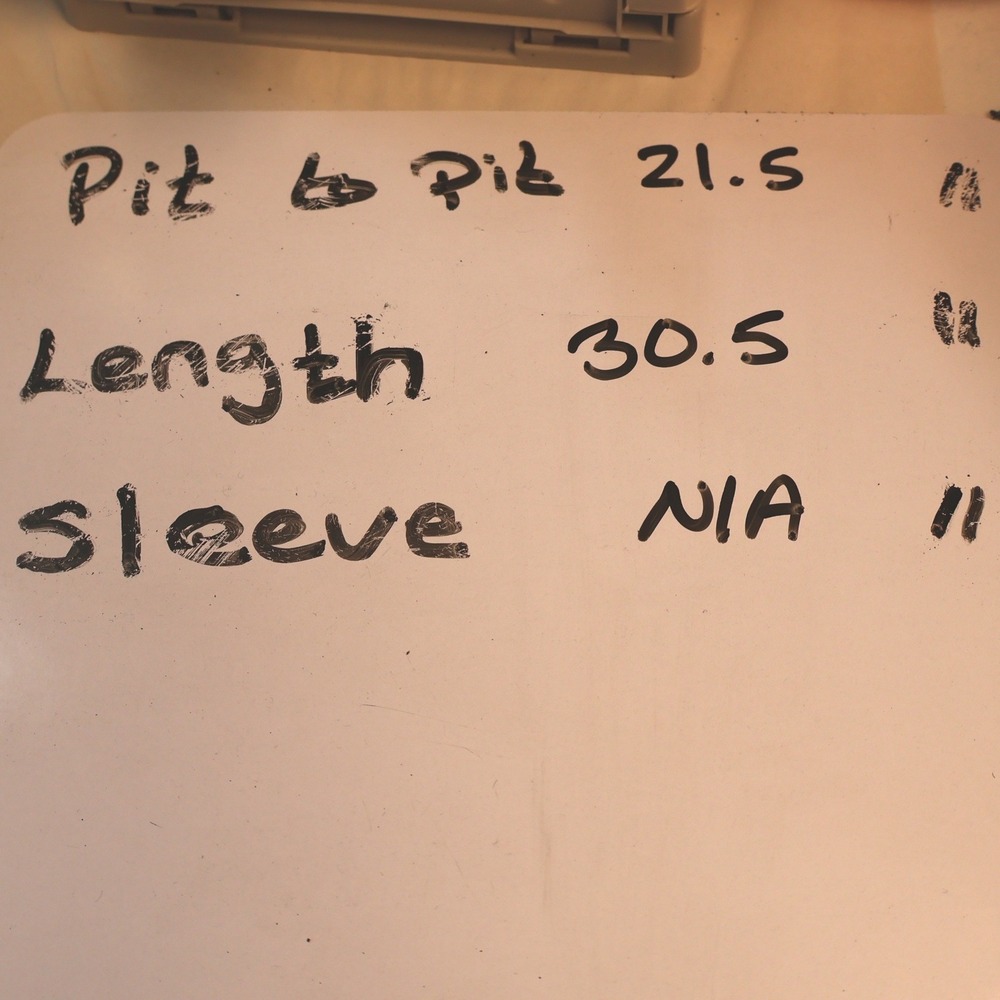 Pit to Pit 21.5 "
Length 30.5 "
Sleeve N/A "